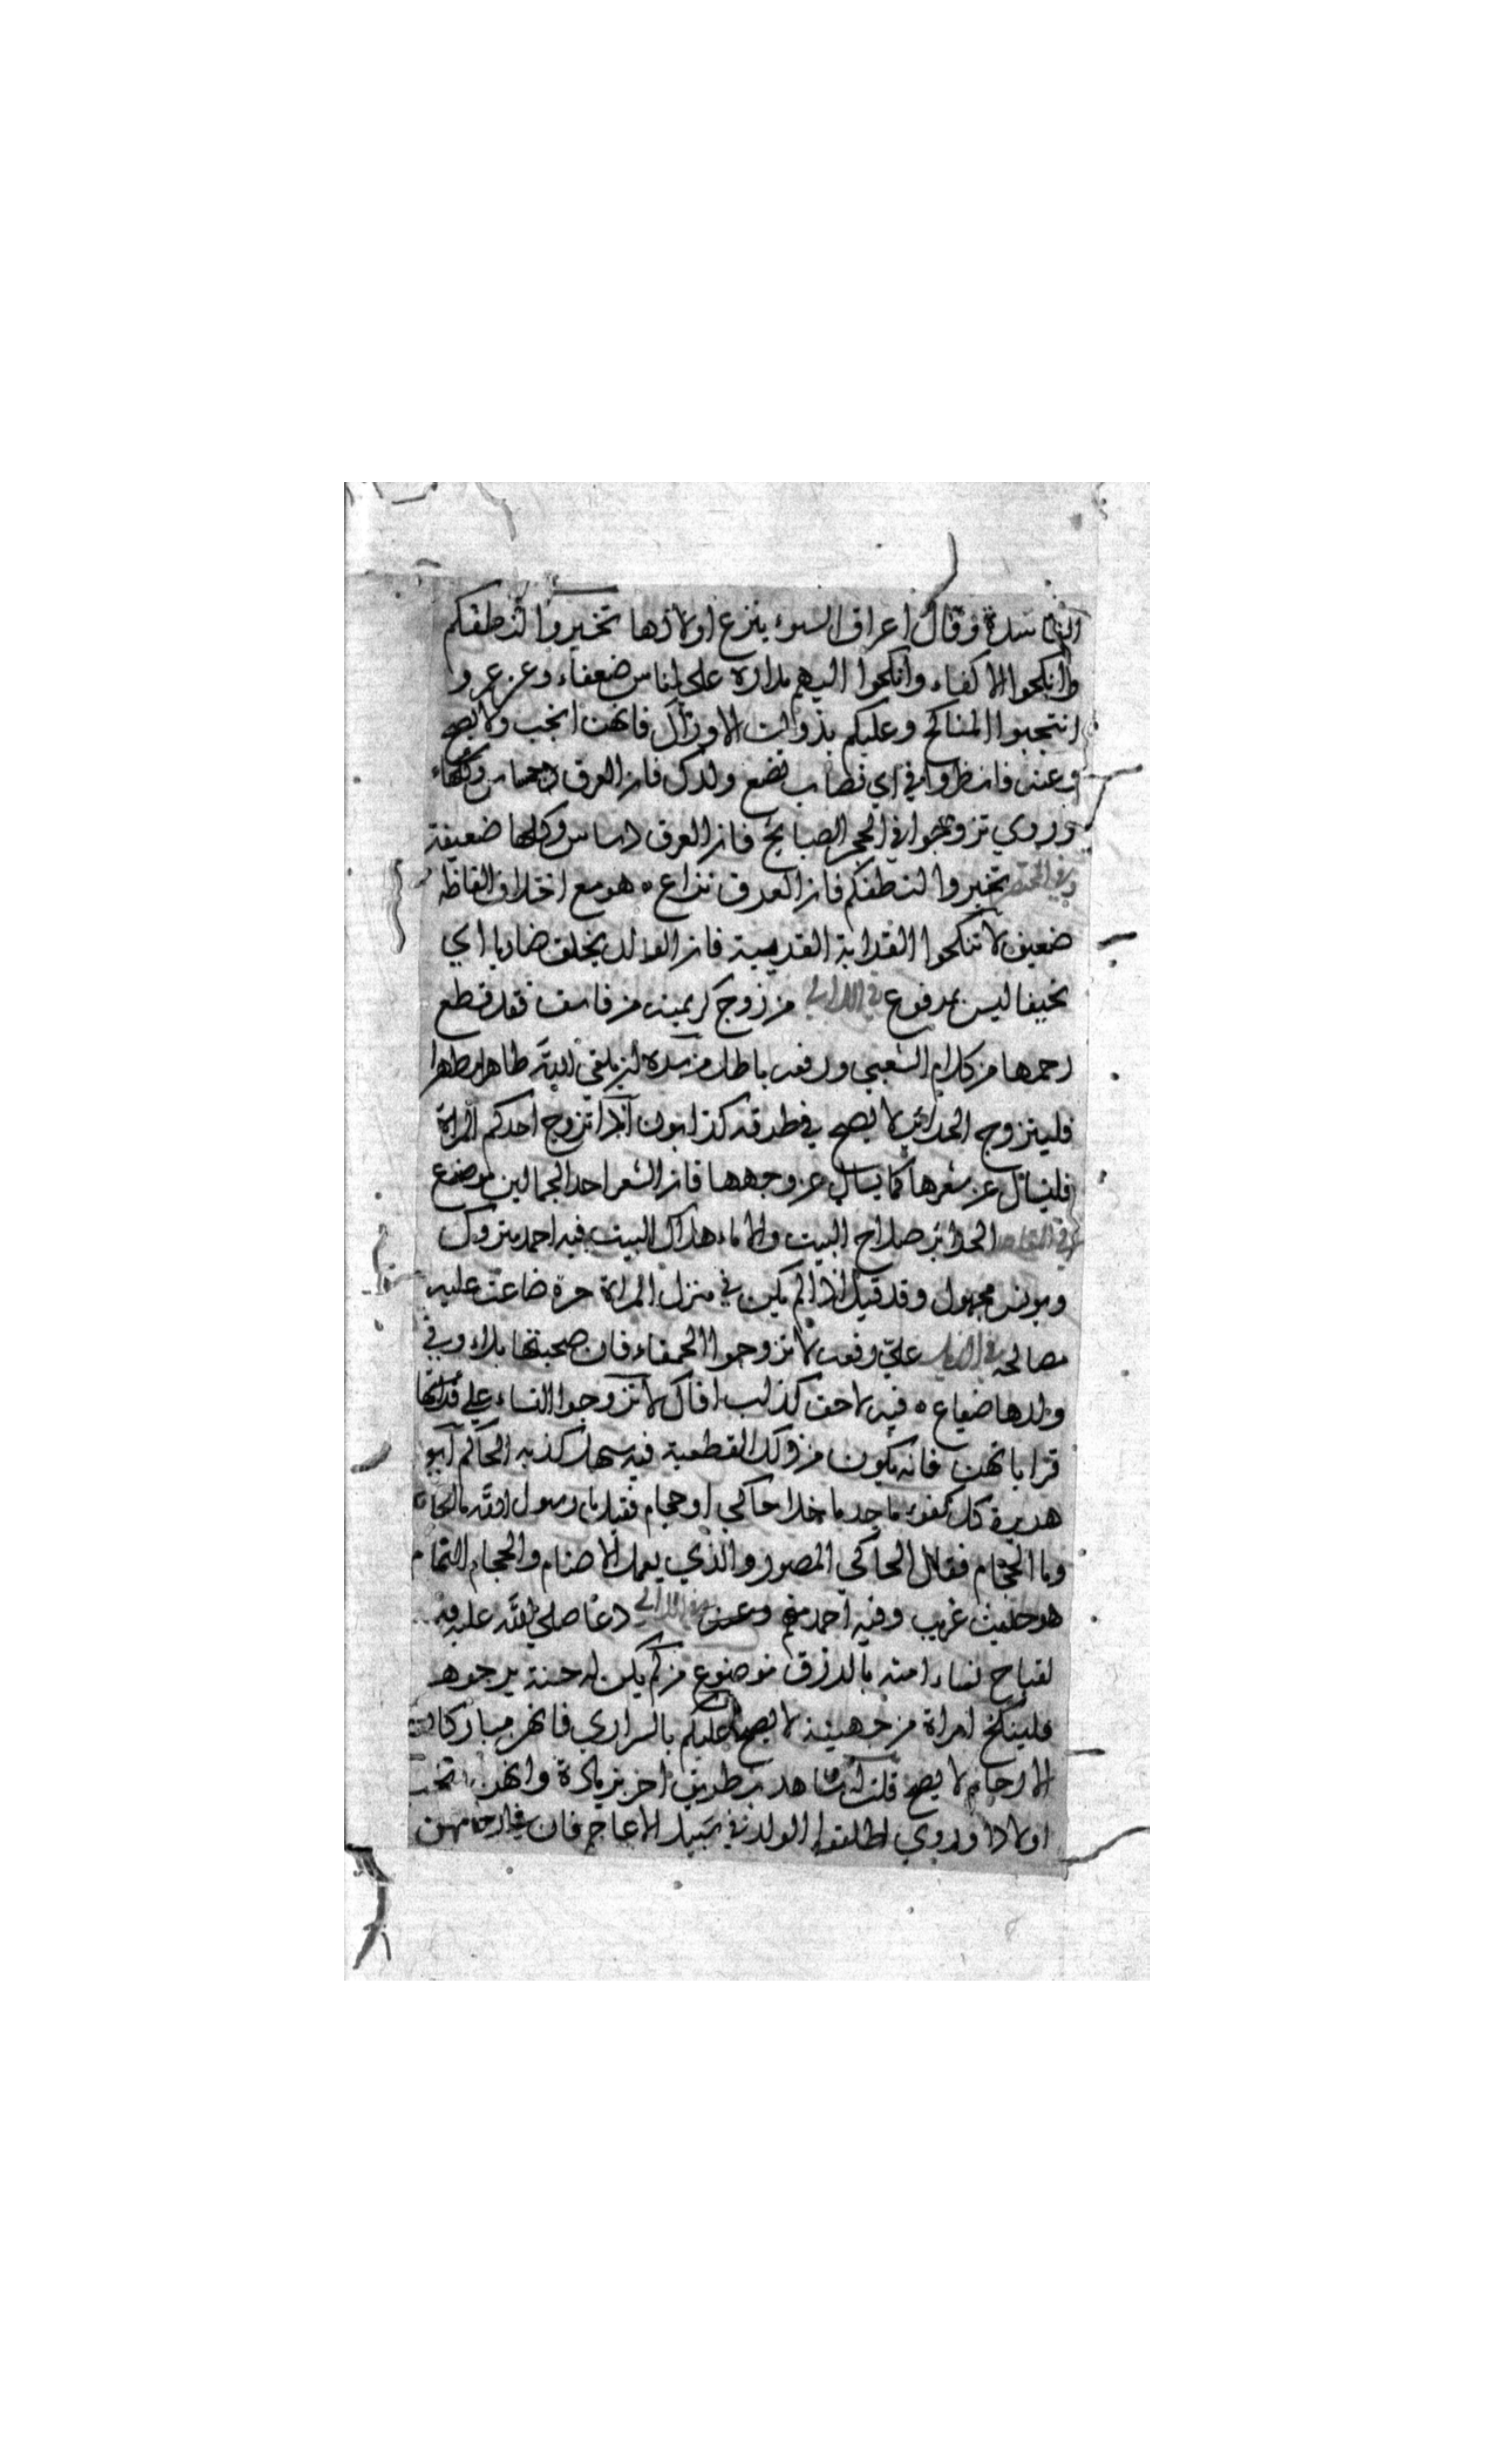 الفاسدة وقال اعراق السوء ينزع اولادها تخيروا لنطفكم
وانكحوا الاكفاء وانكحوا اليهم مداره على اناس ضعفاء وعن عمر و
انتجبوا المناكح وعليكم بذوات الاوراك فانهن انجب ولا يصح
وعنه وانظروا في اي نصاب تضع ولدك فان العرق دساس وكلها
وروي تزوجوا في الحجز الصالح فان العرق دساس وكلها ضعيفة
وفي المختصر تخيروا لنطفكم فان العرق نزاع ه هو مع اختلاف الفاظه
ضعيف لا تنكحوا القرابة القريبة فان الولد يخلق ضاويا اي
نحيفا ليس بمرفوع في اللالي من زوج كريمته من فاسق فقد قطع
رحمها من كلام الشعبي ورفعه باطل من سره ان يلقى الله طاهرا مطهرا
فليتزوج الحرائر لا يصح في طرقه كذابون اذا تزوج احدكم المراة
فليسال عن شعرها كما يسال عن وجهها فان الشعر احد الجمالين موضوع
في المقاصد الحرائر صلاح البيت والاماء هلاك البيت فيه احمد متروك
ويونس مجهول وقد قيل اذا لم يكن في منزل المراة حرة ضاعت عليه
مصالحه في الذيل علي رفعه لا تزوجوا الحمقاء فان صحبتها بلاء وفي
ولدها ضياع ه فيه لاحق كذاب افاك لا تزوجوا النساء على قراباتها
قراباتهن فانه يكون من ذلك القطيعة فيه سهل كذبه الحاكم ابو
هريرة كل كفوء ما جد ما خلا حاكي او حجام فقيل يا رسول الله ما الحاك
وما الحجام فقال الحاكي المصور والذي يعمل الاصنام والحجام النمام
هو حديث غريب وفيه احمد متهم وعن في اللالي دعا صلى الله عليه
لقباح نساء امته بالرزق موضوع من لم يكن له حسنة يرجوها
فلينكح امراة من جهينة لا يصح عليكم بالسراري فانهن مباركات
الارحام لا يصح قلت له شاهد بطريق اخر بزيادة وانهن انجب
اولادا وروي اطلقوا الولد في سبيل الاعاجم فان في ارحامهن